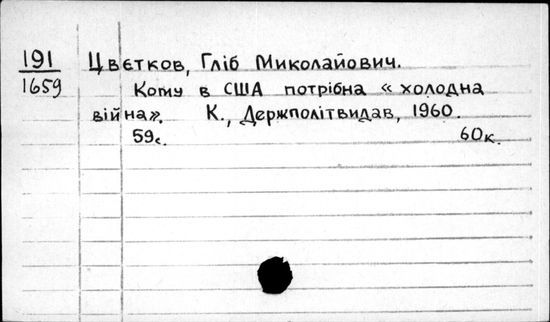 191 Цвєтков, Гліб Миколайович.
1659 Кому в США потрібна «холодна
війна». К., Держполітвидав, 1960.
59с. 60к.